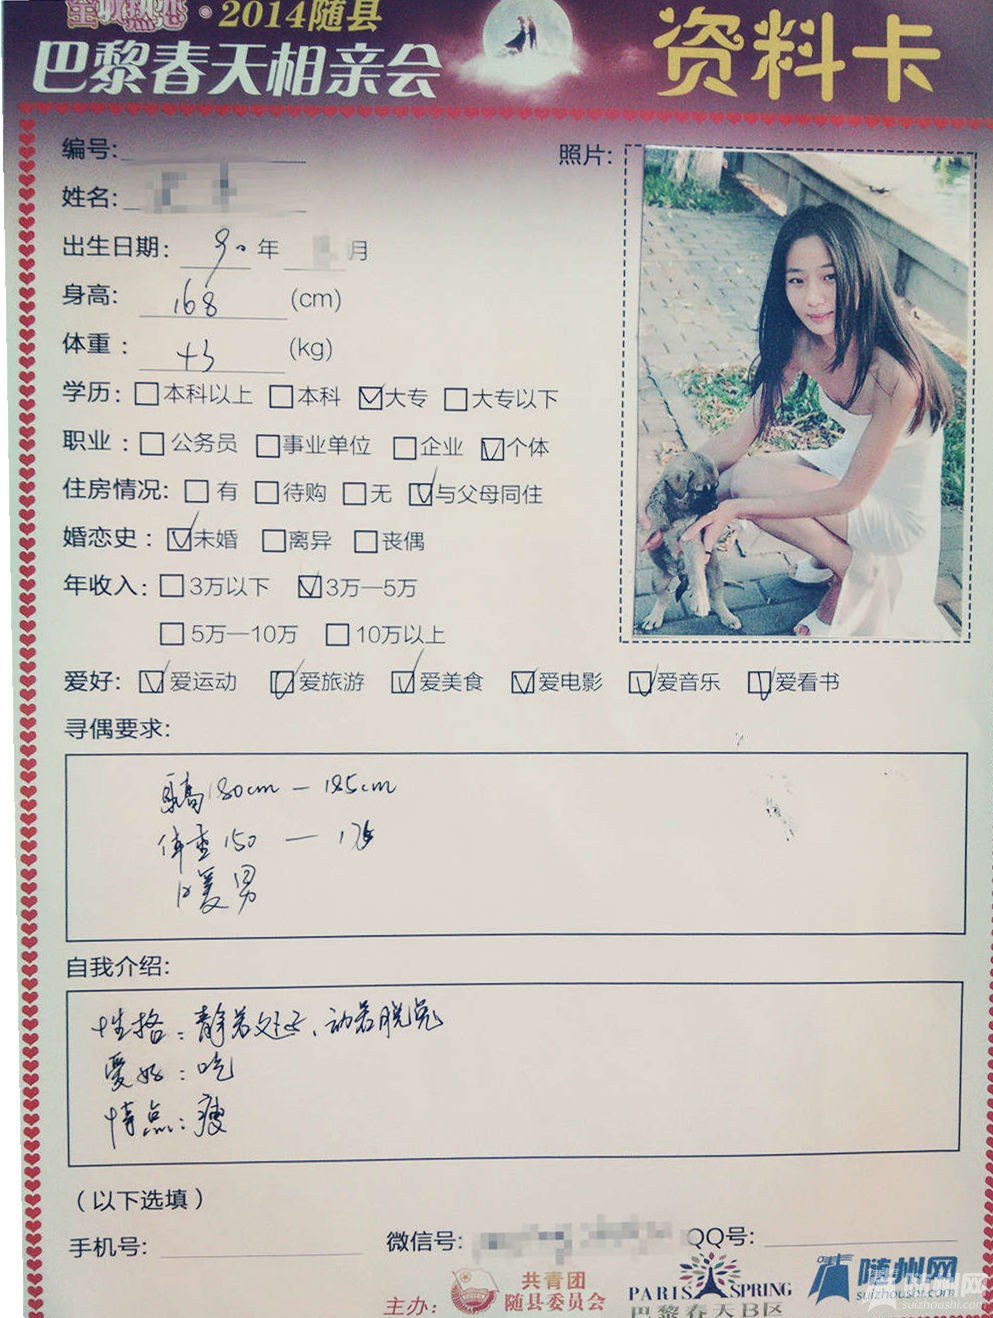 全城热恋·2014随县
巴黎春天相亲会
资料卡
编号:
照片:
姓名:
出生日期: 90 年 月
身高: 168 (cm)
体重: 43 (kg)
学历: 本科以上 本科 大专 大专以下
职业: 公务员 事业单位 企业 个体
住房情况: 有 待购 无 与父母同住
婚恋史: 未婚 离异 丧偶
年收入: 3万以下 3万—5万
5万—10万 10万以上
爱好: 爱运动 爱旅游 爱美食 爱电影 爱音乐 爱看书
寻偶要求:
身高180cm — 185cm
体重150 — 175
暖男
自我介绍:
性格: 静若处子、动若脱兔
爱好: 吃
特点: 瘦
(以下选填)
手机号: 微信号: QQ号:
主办: 共青团
随县委员会
PARIS SPRING
巴黎春天B区
随州网
suizhoushi.com
随州网
suizhoushi.com